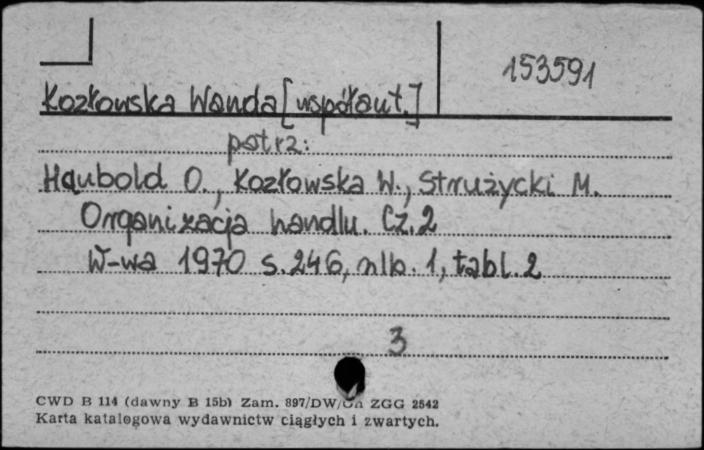 153591
Kozłowska Wanda [współaut.]
patrz:
Haubold O., Kozłowska W., Strużycki M.
Organizacja handlu. Cz. 2
W-wa 1970 s. 246, nlb. 1, tabl. 2
3
CWD B 114 (dawny B 15b) Zam. 897/DW/ ZGG 2542
Karta katalogowa wydawnictw ciągłych i zwartych.